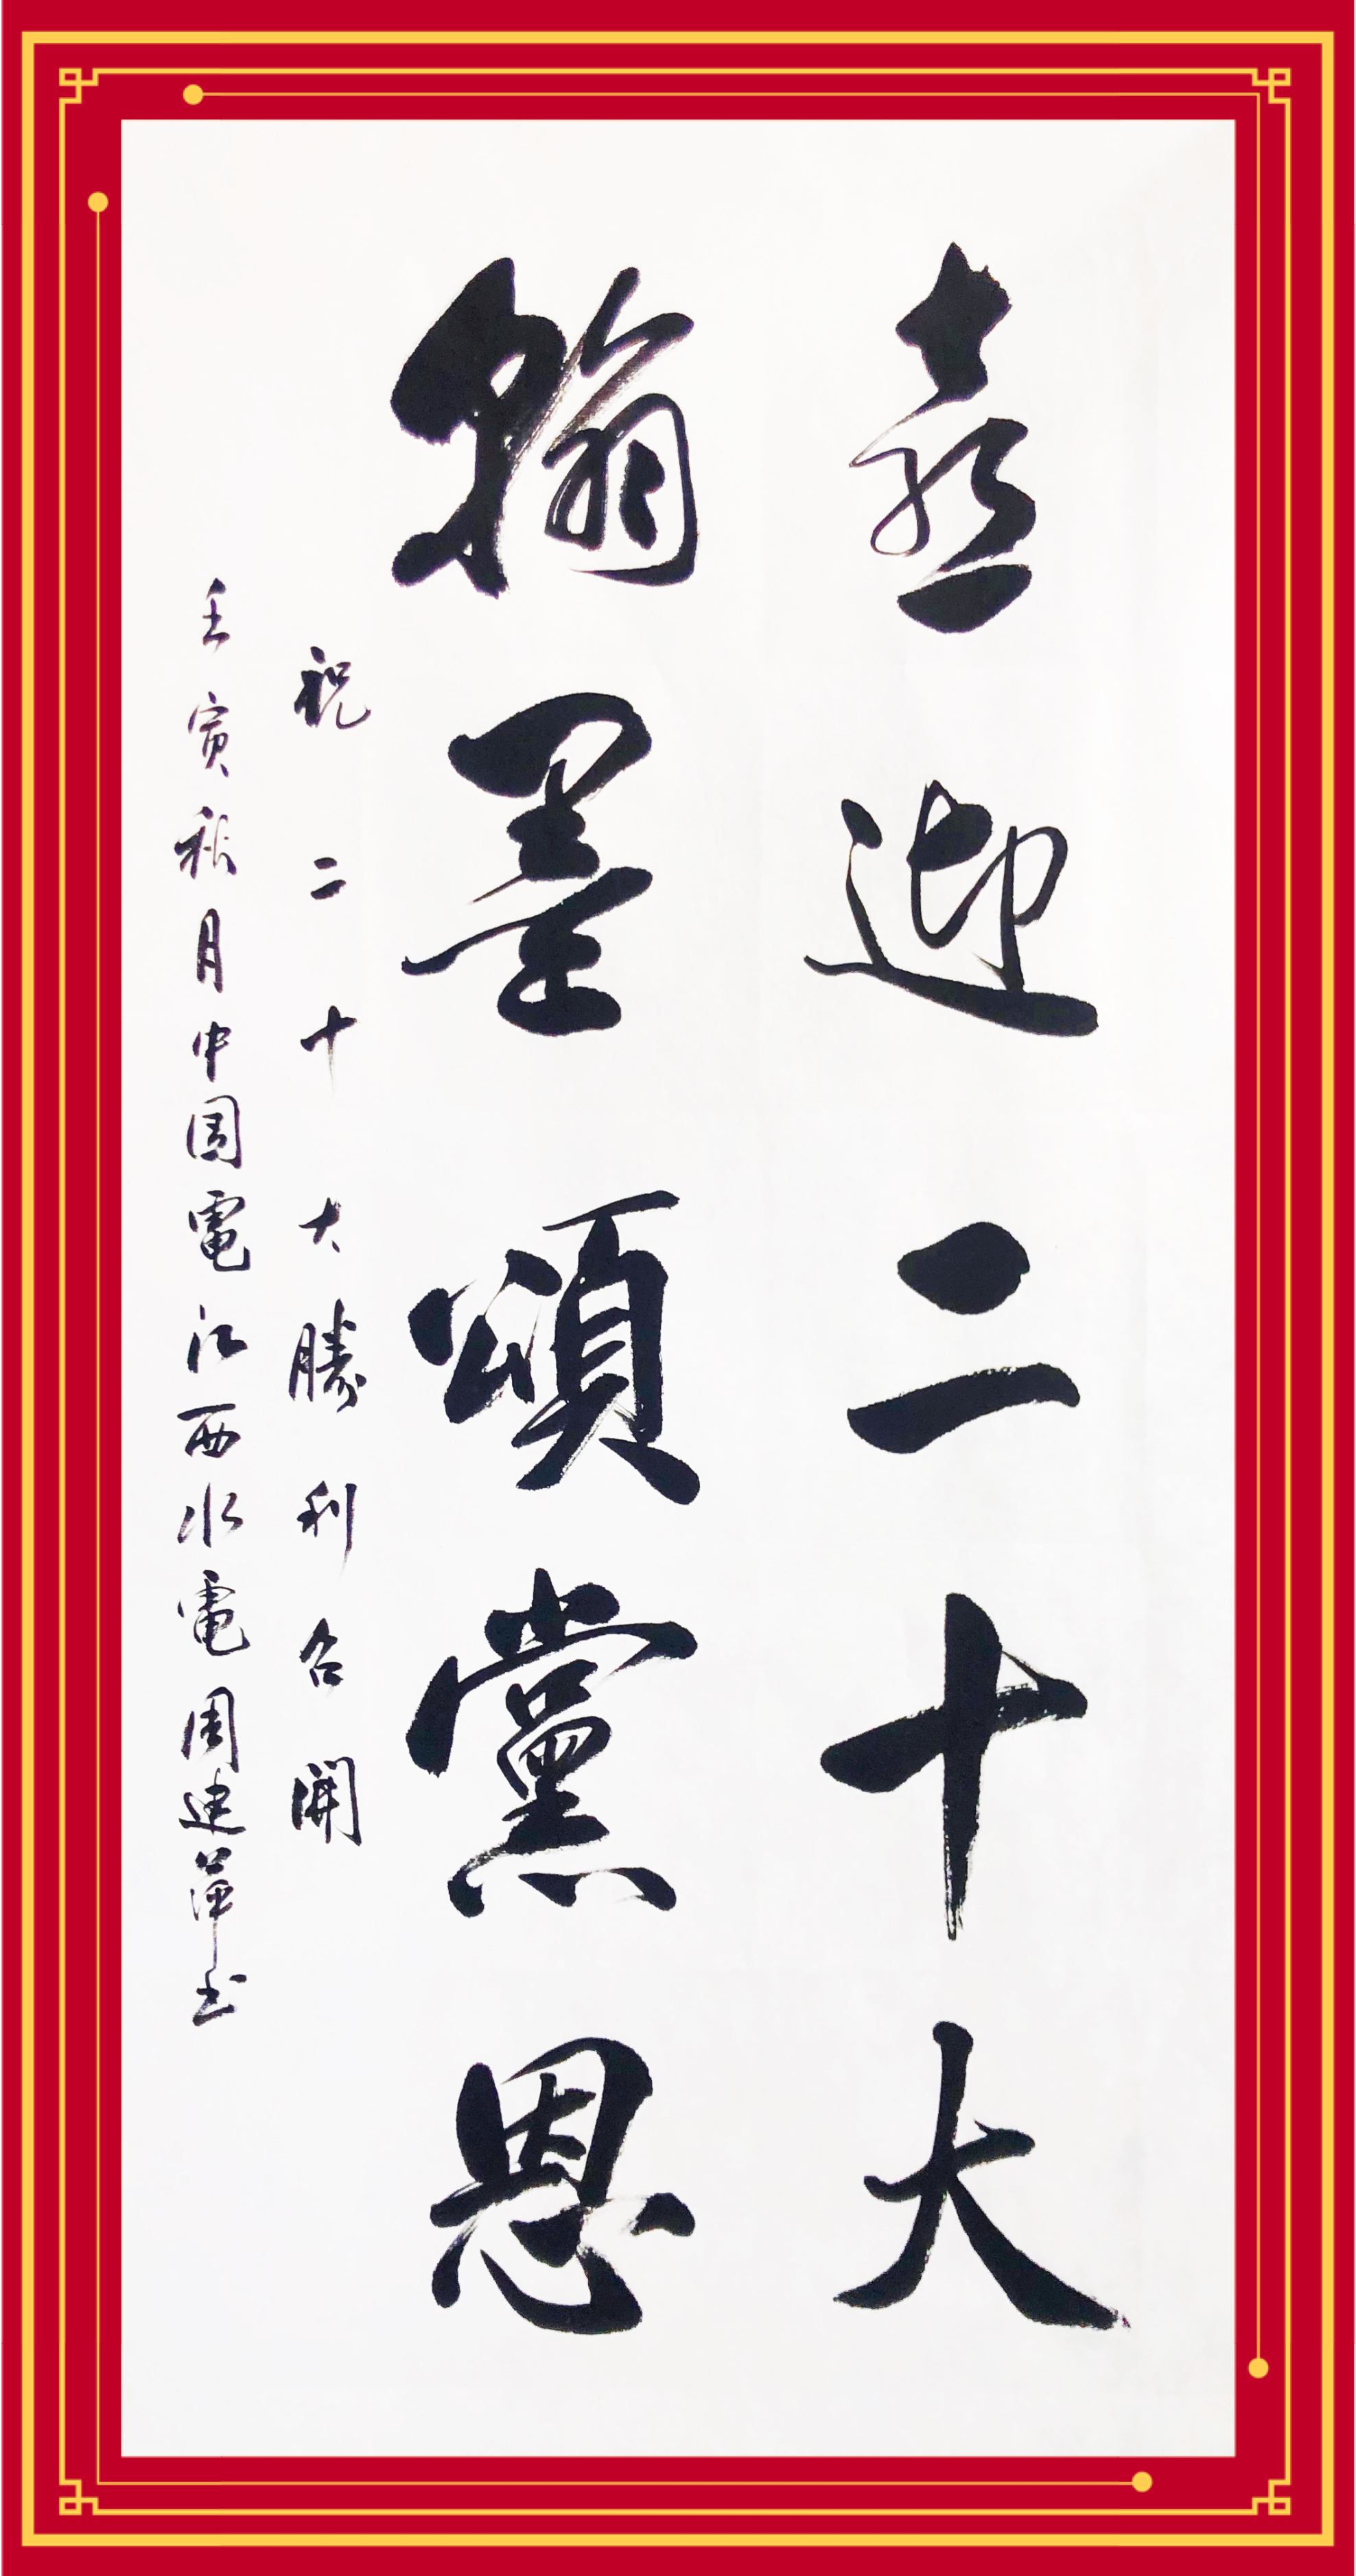 喜迎二十大
翰墨頌黨恩
祝二十大勝利召開
壬寅秋月中国電江西水電周建萍书